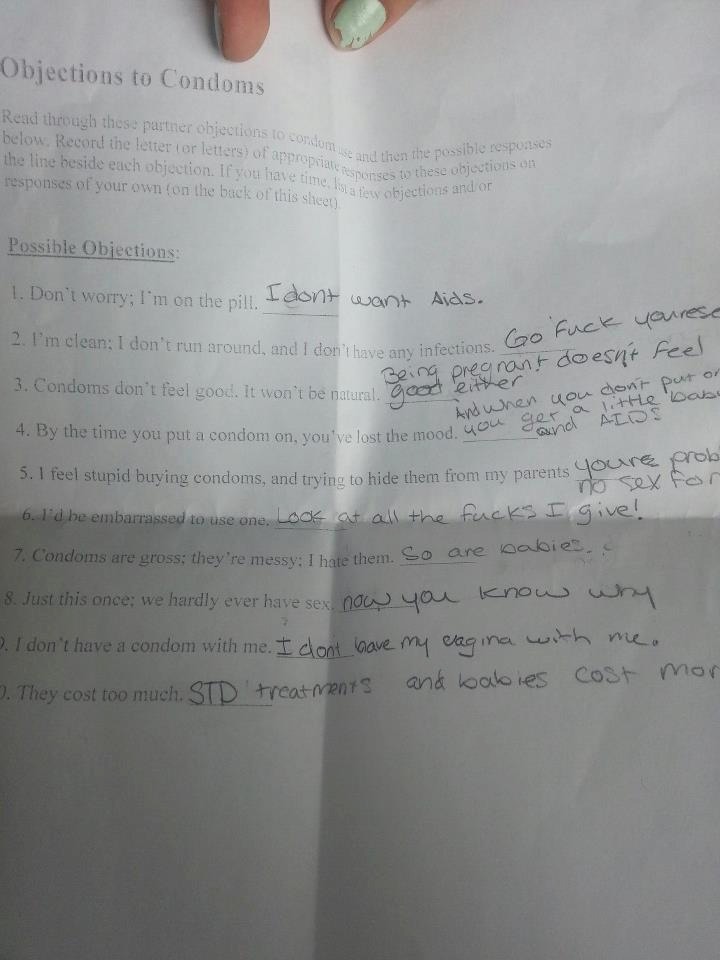 Objections to Condoms
Read through these partner objections to condom use and then the possible responses
below. Record the letter (or letters) of appropriate responses to these objections on
the line beside each objection. If you have time, list a few objections and/or
responses of your own (on the back of this sheet).
Possible Objections:
1. Don't worry; I'm on the pill. I dont want Aids.
2. I'm clean; I don't run around, and I don't have any infections. Go Fuck yourese
3. Condoms don't feel good. It won't be natural. Being pregnant doesn't feel
good either
4. By the time you put a condom on, you've lost the mood. And when you don't put on
you get a little baby
and AIDS
5. I feel stupid buying condoms, and trying to hide them from my parents youre prob
no sex for
6. I'd be embarrassed to use one. Look at all the fucks I give!
7. Condoms are gross; they're messy; I hate them. So are babies.
8. Just this once; we hardly ever have sex. now you know why
9. I don't have a condom with me. I dont have my vagina with me.
0. They cost too much. STD treatments and babies cost mor